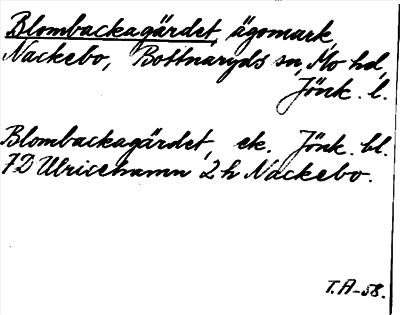 Blombackagärdet, ägomark,
Nackebo, Bottnaryds sn, Mo hd,
Jönk. l.
Blombackagärdet, ek. Jönk. bl.
7D Ulricehamn 2h Nackebo.
T.A-58.